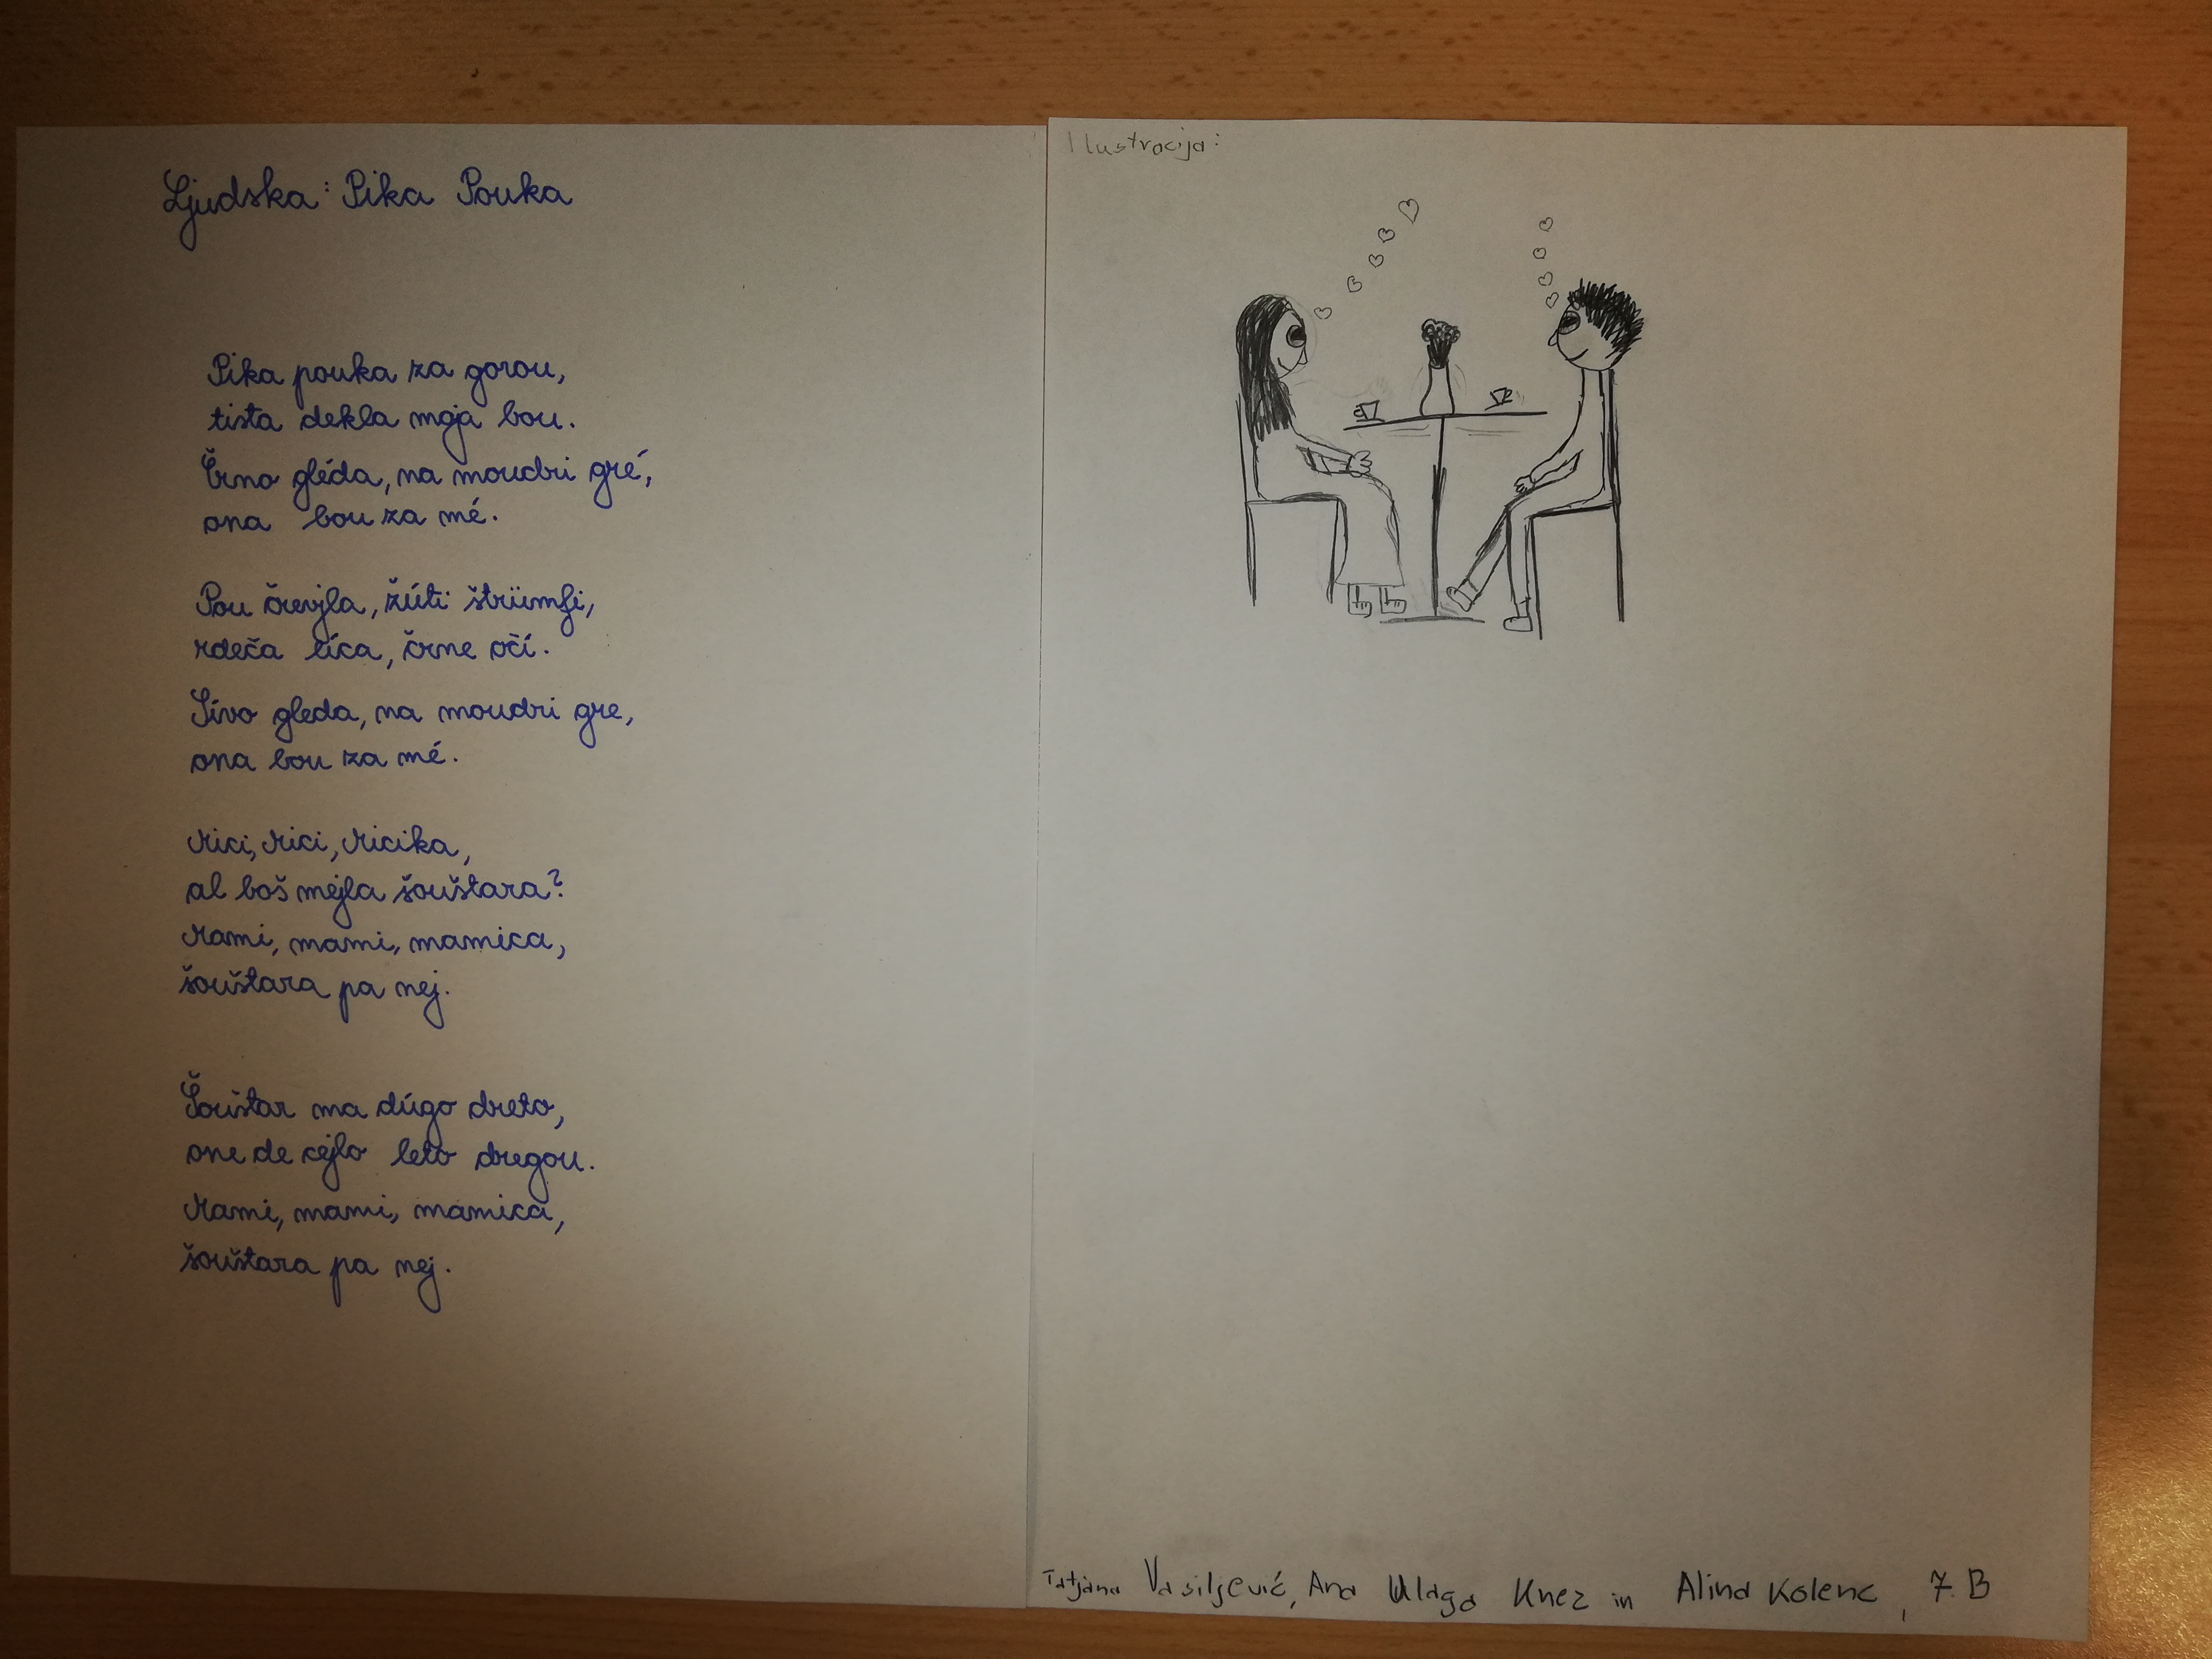 Ljudska: Pika Pouka
Pika pouka za gorou,
tista dekla moja bou.
Črno gléda, na moudri gré,
ona bou za mé.
Pou črevjla, žúti štrümfi,
rdeča líca, črne očí.
Sívo gleda, na moudri gre,
ona bou za mé.
Mici, Mici, Micika,
al boš mejla šouštara?
Mami, mami, mamica,
šouštara pa nej.
Šouštar ma dúgo dreto,
one de cejlo leto dregou.
Mami, mami, mamica,
šouštara pa nej.
Ilustracija:
Tatjana Vasiljević, Ana Ulaga Knez in Alina Kolenc, 7. B